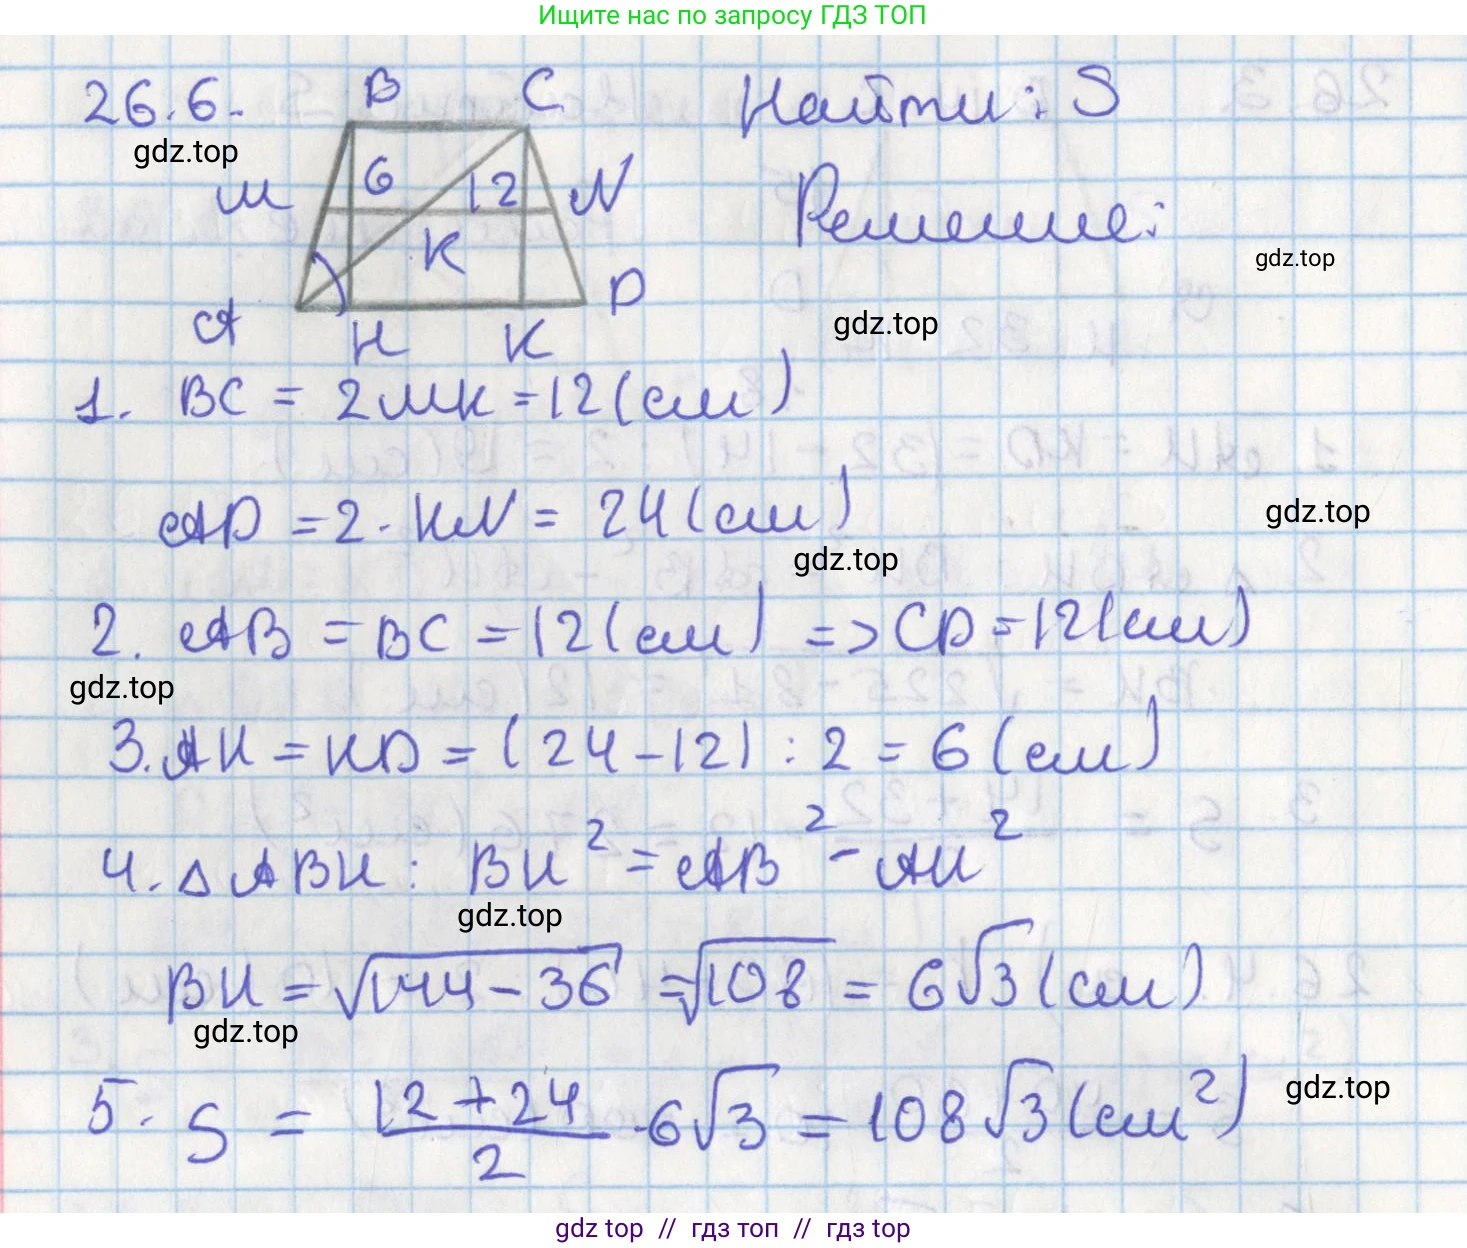 Ищите нас по запросу ГДЗ ТОП
26.6. B C Найти: S
gdz.top
M 6 12 N Решение:
K gdz.top
A H K D gdz.top
1. BC = 2MK = 12(см)
AD = 2·KN = 24(см) gdz.top
gdz.top
2. AB = BC = 12(см) => CD = 12(см)
gdz.top
3. AH = KD = (24-12) : 2 = 6(см)
4. △ABH: BH² = AB² - AH²
gdz.top
BH = √144-36 = √108 = 6√3(см)
gdz.top
5. S = 12+24/2 · 6√3 = 108√3(см²) gdz.top
gdz top // гдз топ // гдз top